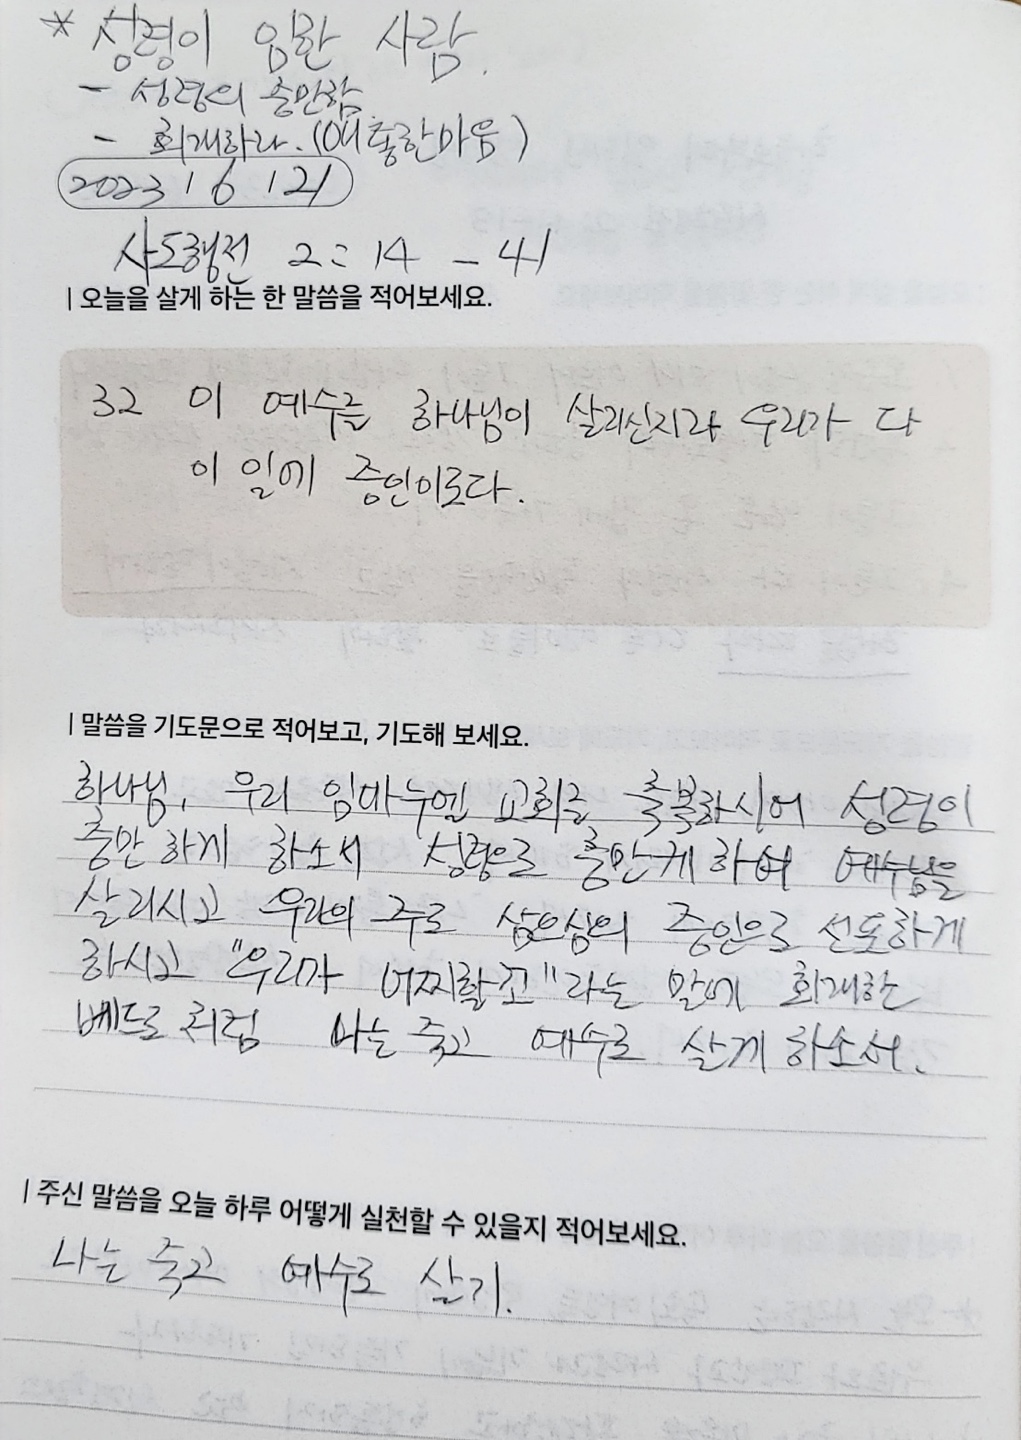 * 성령이 임한 사람.
- 성령의 충만함
- 회개하라. (애통한마음)
2023 / 6 / 21
사도행전 2 : 14 - 41
| 오늘을 살게 하는 한 말씀을 적어보세요.
32 이 예수를 하나님이 살리신지라 우리가 다
이 일에 증인이로다.
| 말씀을 기도문으로 적어보고, 기도해 보세요.
하나님, 우리 임마누엘 교회를 축복하시어 성령이
충만 하게 하소서 성령으로 충만케 하여 예수님을
살리시고 우리의 주로 삼으심의 증인으로 선포하게
하시고 "우리가 어찌할꼬" 라는 말에 회개한
베드로 처럼 나는 죽고 예수로 살게 하소서.
| 주신 말씀을 오늘 하루 어떻게 실천할 수 있을지 적어보세요.
나는 죽고 예수로 살기.